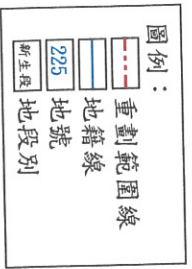 圖例：
重劃範圍線
地籍線
225 地號
新生段 地段別